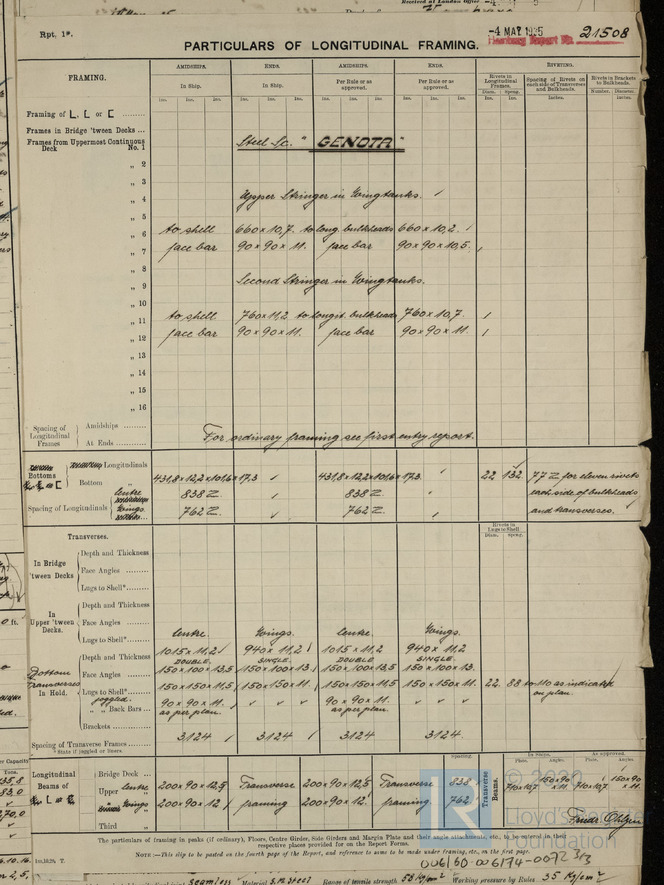 Received at London Office
Rpt. 1*.
-4 MAY 1935
Hamburg Report No. 21508
PARTICULARS OF LONGITUDINAL FRAMING.
FRAMING. AMIDSHIPS. ENDS. AMIDSHIPS. ENDS. RIVETING.
In Ship. In Ship. Per Rule or as approved. Per Rule or as approved. Rivets in Longitudinal Frames. Spacing of Rivets on each side of Transverses and Bulkheads. Rivets in Brackets to Bulkheads.
Ins. Ins. Ins. Ins. Ins. Ins. Ins. Ins. Ins. Ins. Ins. Ins. Diam. Ins. Spcng. Ins. Inches. Number. Diameter. Inches.
Framing of L, L or [
Frames in Bridge 'tween Decks ...
Frames from Uppermost Continuous Deck No. 1 Steel Sc. "GENOTA"
" 2
" 3
" 4 Upper Stringer in Wingtanks.
" 5
" 6 to shell 660 x 10,7. to long. bulkheads 660 x 10,2.
" 7 face bar 90 x 90 x 11. face bar 90 x 90 x 10,5.
" 8
" 9 Second Stringer in Wingtanks.
" 10
" 11 to shell 760 x 11,2 to longit. bulkheads 760 x 10,7.
" 12 face bar 90 x 90 x 11. face bar 90 x 90 x 11.
" 13
" 14
" 15
" 16
Spacing of Longitudinal Frames Amidships
At Ends For ordinary framing see first entry report.
Bottoms Longitudinals
Bottom " 431,8 x 12,2 x 101,6 x 17,3 431,8 x 12,2 x 101,6 x 17,3. 22 132 77 Z for eleven rivets
Spacing of Longitudinals Centre 838 Z. 838 Z. each side of bulkheads
Wings 762 Z. 762 Z. and transverses.
Rivets in Lugs to Shell. Diam. Spcng.
Transverses.
In Bridge 'tween Decks Depth and Thickness
Face Angles
Lugs to Shell*
In Upper 'tween Decks. Depth and Thickness
Face Angles
Lugs to Shell* Centre. Wings. Centre. Wings.
Bottom Transverses In Hold. Depth and Thickness 1015 x 11,2 940 x 11,2 1015 x 11,2 940 x 11,2
DOUBLE. SINGLE. DOUBLE SINGLE.
Face Angles 150 x 100 x 13,5 150 x 100 x 13. 150 x 100 x 13,5 150 x 100 x 13.
Lugs to Shell* 150 x 150 x 11,5 150 x 150 x 11. 150 x 150 x 11,5 150 x 150 x 11. 22. 88 to 110 as indicated on plan.
joggled
" Back Bars 90 x 90 x 11. " " " 90 x 90 x 11. " " "
as per plan. as per plan.
Brackets
Spacing of Transverse Frames 3124 3124 3124 3124
*State if joggled or liners
Spacing. In Ships. As approved.
Plate. Angles. Plate. Angles
Longitudinal Beams of Bridge Deck
Upper Centre " 200 x 90 x 12,5 Transverse 200 x 90 x 12,5 Transverse 838 Transverse Beams. 710 x 10,7 150 x 90 x 11 710 x 10,7. 150 x 90 x 11.
Wings " 200 x 90 x 12 framing 200 x 90 x 12 framing. 762
Third "
The particulars of framing in peaks (if ordinary), Floors, Centre Girder, Side Girders and Margin Plate and their angle attachments, etc., to be entered in their
respective places provided for on the Report Forms.
NOTE.—This slip to be pasted on the fourth page of the Report, and reference to same to be made under framing, etc., on the first page.
006160-006174-0072 3/3
© 2020
Lloyd's Register
Foundation
seamless Material S.M. Steel Range of tensile strength Working pressure by Rules 35 Kg/cm²